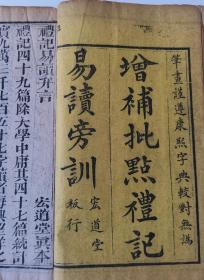 筆畫謹遵康熙字典較對無譌
增補批點禮記
易讀旁訓
宏道堂
板行
禮記易讀弁言
宏道堂真本
禮記四十九篇除大學中庸其四十七篇統計